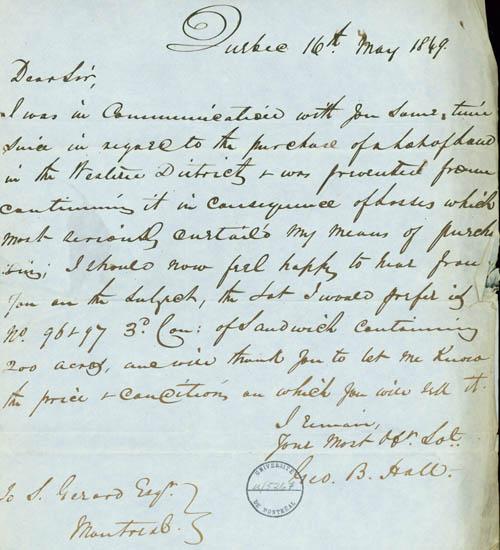 Quebec 16th May 1849
Dear Sir,
I was in Communication with you some time
since in regard to the purchase of a Lot of Land
in the Western District & was prevented from
continuing it in consequence of losses which
most seriously curtail'd my means of purcha
sing; I should now feel happy to hear from
you on the subject, the Lot I would prefer is
No. 96 & 97 3d Con: of Sandwich containing
200 acres, and will thank you to let me know
the price & conditions on which you will sell it.
I remain,
Your Most Obt. Svt.
Geo. B. Hall.
To S. Gerard Esqr.
Montreal.
UNIVERSITÉ
DE MONTRÉAL